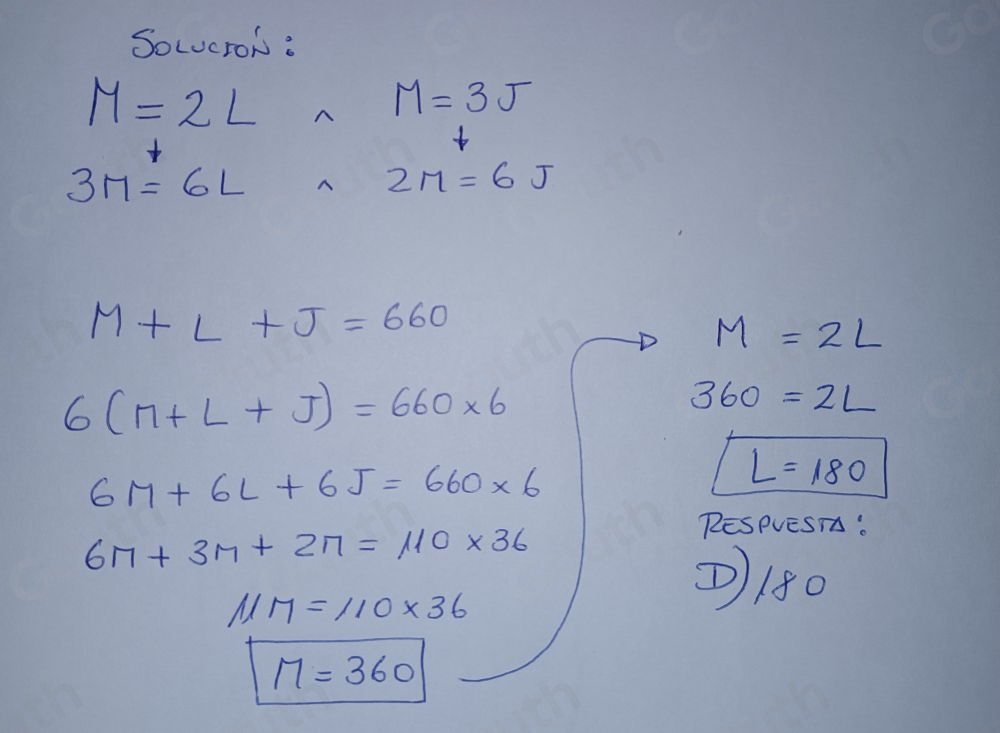 SOLUCIÓN:
M = 2L ^ M = 3J
↓ ↓
3M = 6L ^ 2M = 6J
M + L + J = 660
6(M + L + J) = 660 × 6
6M + 6L + 6J = 660 × 6
6M + 3M + 2M = 110 × 36
11M = 110 × 36
M = 360
M = 2L
360 = 2L
L = 180
RESPUESTA:
D) 180